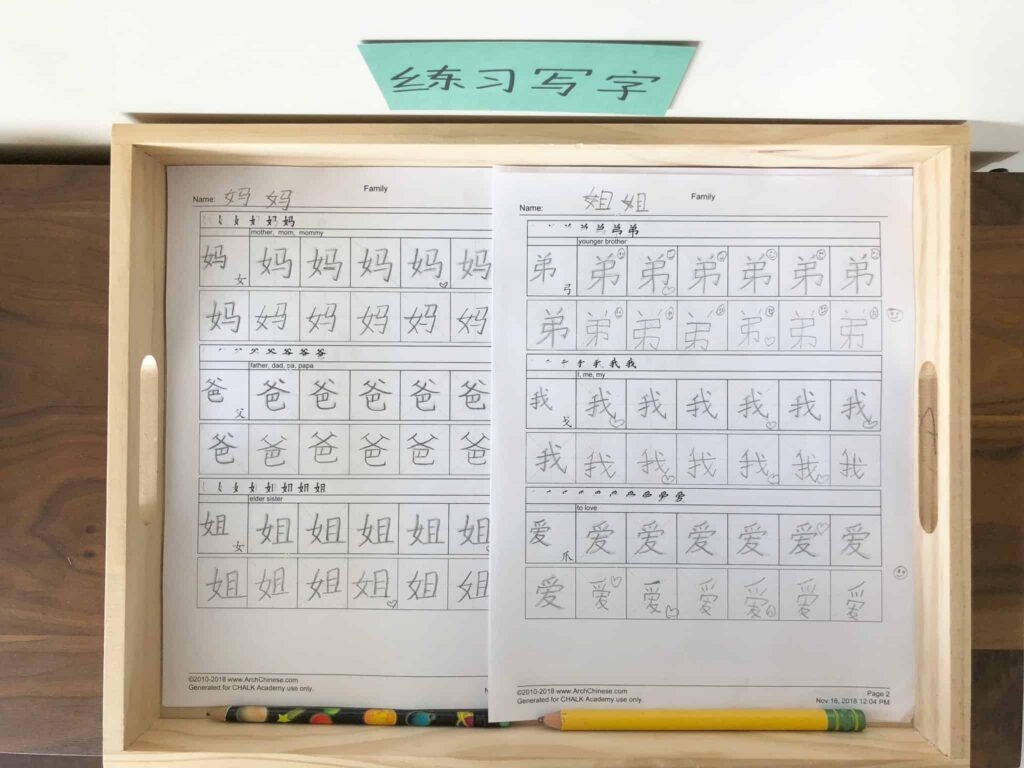 练习写字
Family
Name: 妈 妈
妈
mother, mom, mommy
妈 女 妈 妈 妈 妈 妈
妈 妈 妈 妈 妈 妈
爸
father, dad, pa, papa
爸 父 爸 爸 爸 爸 爸
爸 爸 爸 爸 爸 爸
姐
elder sister
姐 女 姐 姐 姐 姐 姐
姐 姐 姐 姐 姐 姐
©2010-2018 www.ArchChinese.com
Generated for CHALK Academy use only.
Family
Name: 姐 姐
弟
younger brother
弟 弓 弟 弟 弟 弟 弟 弟
弟 弟 弟 弟 弟 弟 弟
我 我
I, me, my
我 戈 我 我 我 我 我 我
我 我 我 我 我 我 我
爱
to love
爱 爪 爱 爱 爱 爱 爱 爱
爱 爱 爱 爱 爱 爱 爱
©2010-2018 www.ArchChinese.com
Generated for CHALK Academy use only.
Page 2
Nov 16, 2018 12:04 PM